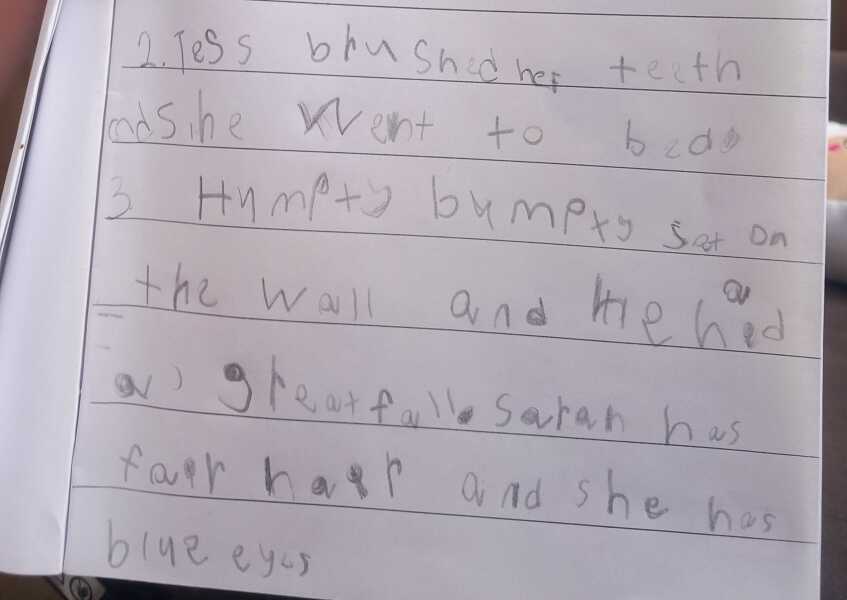 2. Tess brushed her teeth
and she went to bed.
3 Humpty bumpty sat on
the wall and He had
a great fall. Sarah has
fair hair and she has
blue eyes